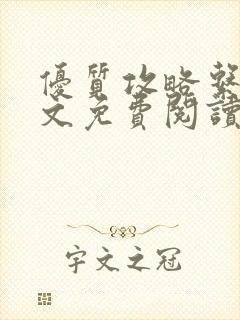 優質攻略繫
文免費閱讀
宇文之冠